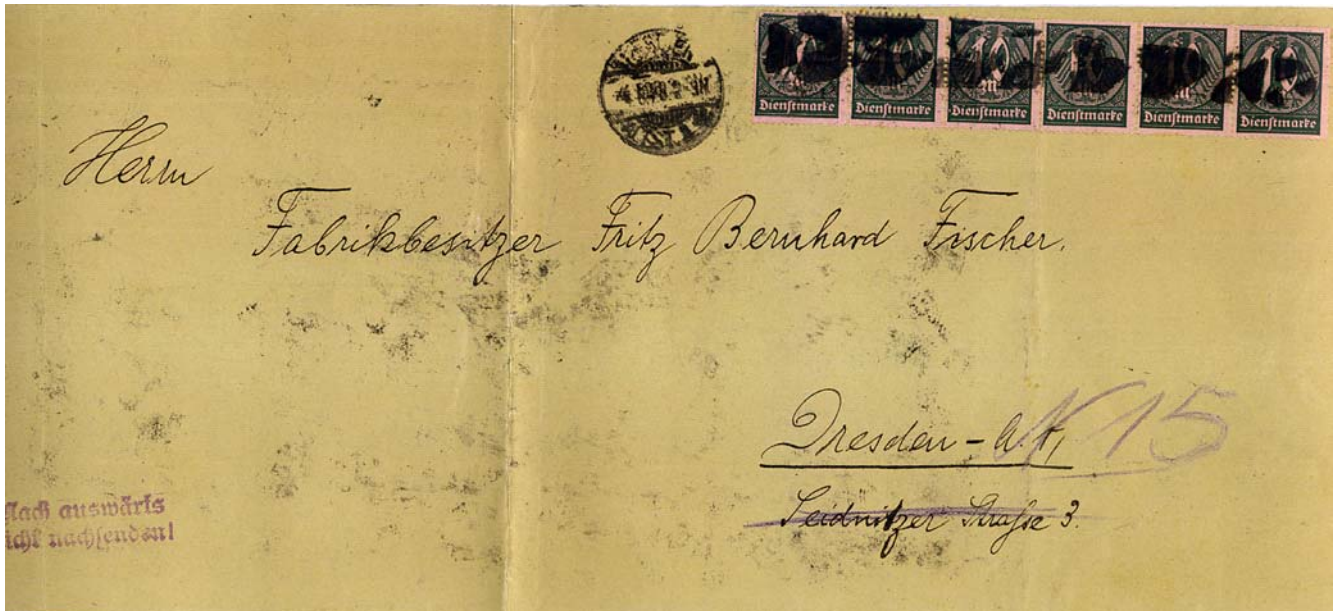 Dienstmarke Dienstmarke Dienstmarke Dienstmarke Dienstmarke Dienstmarke
Herrn
Fabrikbesitzer Fritz Bernhard Fischer.
Dresden - A.
N 15
Seidnitzer Straße 3.
Nach auswärts
nicht nachsenden!